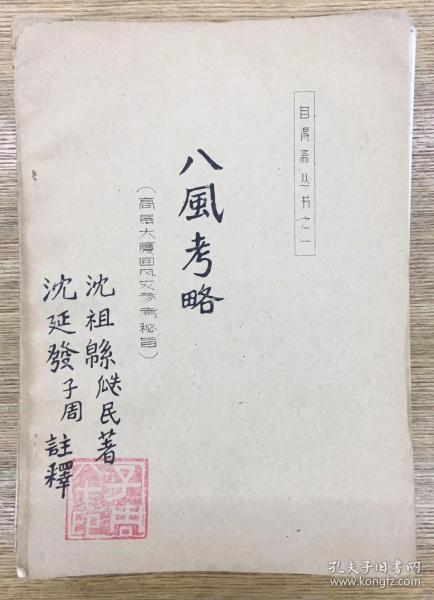 自得斋丛书之一
八風考略
（高层大厦回风灾参考秘旨）
沈祖緜瓞民著
沈延發子周註釋
孔夫子旧书网
www.kongfz.com